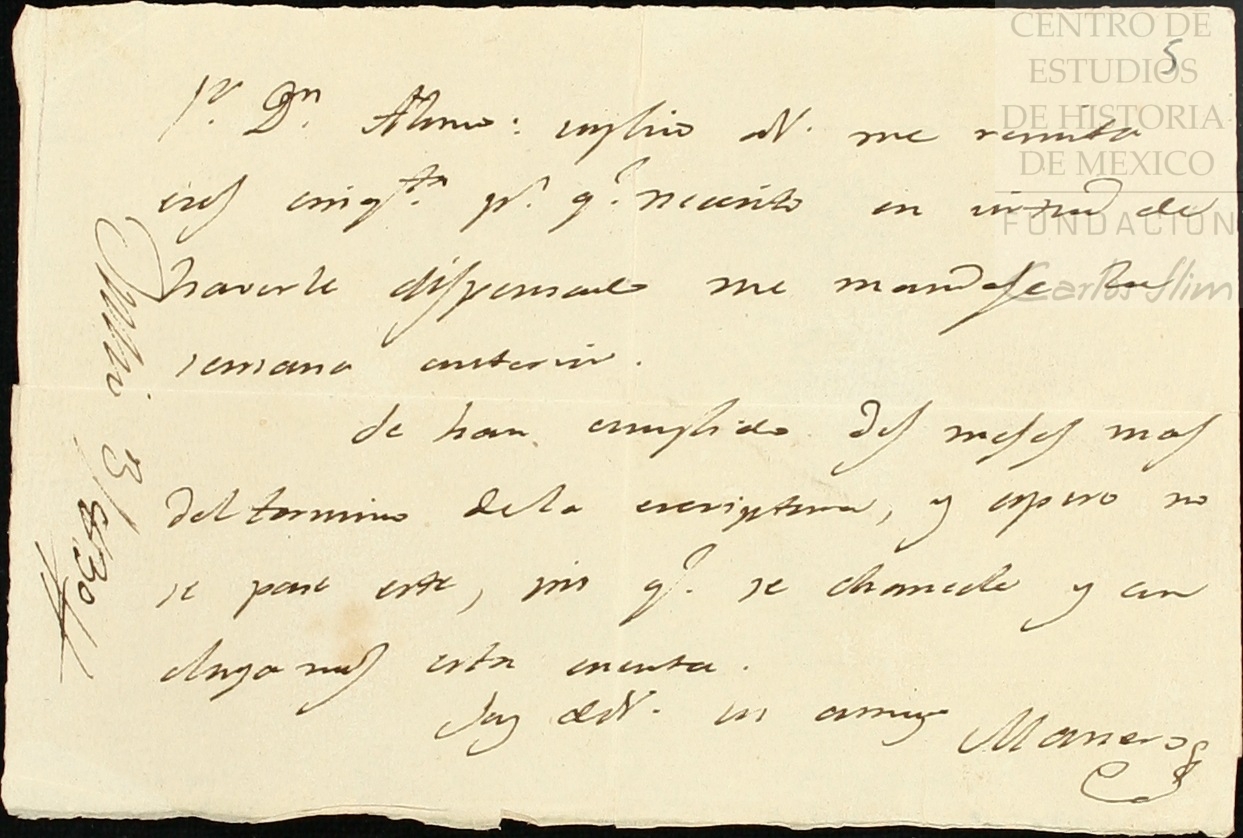 Sr. Dn. suplico a V. me remita
cinqta. ps. qe. necesito en virtud de
haverle dispensado me mandase la
semana anterior.
Se han cumplido dos meses mas
del termino de la escriptura, y espero no
se pase este, sin qe. se chancele y con
cluyamos esta cuenta.
Soy de V. su amigo
Manero
3/830
5
CENTRO DE
ESTUDIOS
DE HISTORIA
DE MEXICO
FUNDACION
Carlos Slim